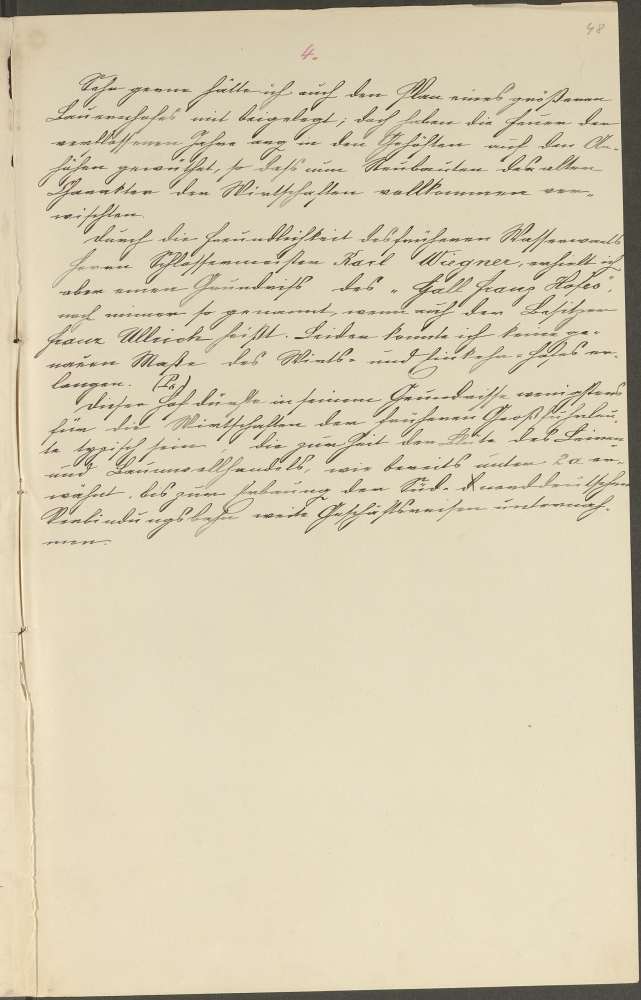 48
4.
Sehr gerne hätte ich auch den Plan eines größeren
Bauernhofes mit beigelegt; doch haben die Feuer der
verflossenen Jahre arg in den Gehöften auf den An-
höhen gewüthet, so dass nun Neubauten den alten
Charakter der Wirtschaften vollkommen ver-
wischten.
Durch die Freundlichkeit des früheren Wasserwarts
Herrn Schlossermeisters Karl Wiegner, erhielt ich
aber einen Grundriss des „Gall Franz Hofes“
noch immer so genannt, wenn auch der Besitzer
Franz Ullrich heißt. Leider konnte ich keine ge-
nauen Maße des Wirts- und Einkehr-Hofes er-
langen.
Dieser Hof dürfte in seinem Grundrisse wenigstens
für die Wirtschaften der früheren Großfuhrleu-
te typisch sein, die zur Zeit der des Leinen
und Baumwollhandels, wie bereits unter 2a er-
wähnt, bis zur der Süd- norddeutschen
Verbindungsbahn weite Geschäftsreisen unternah-
men.